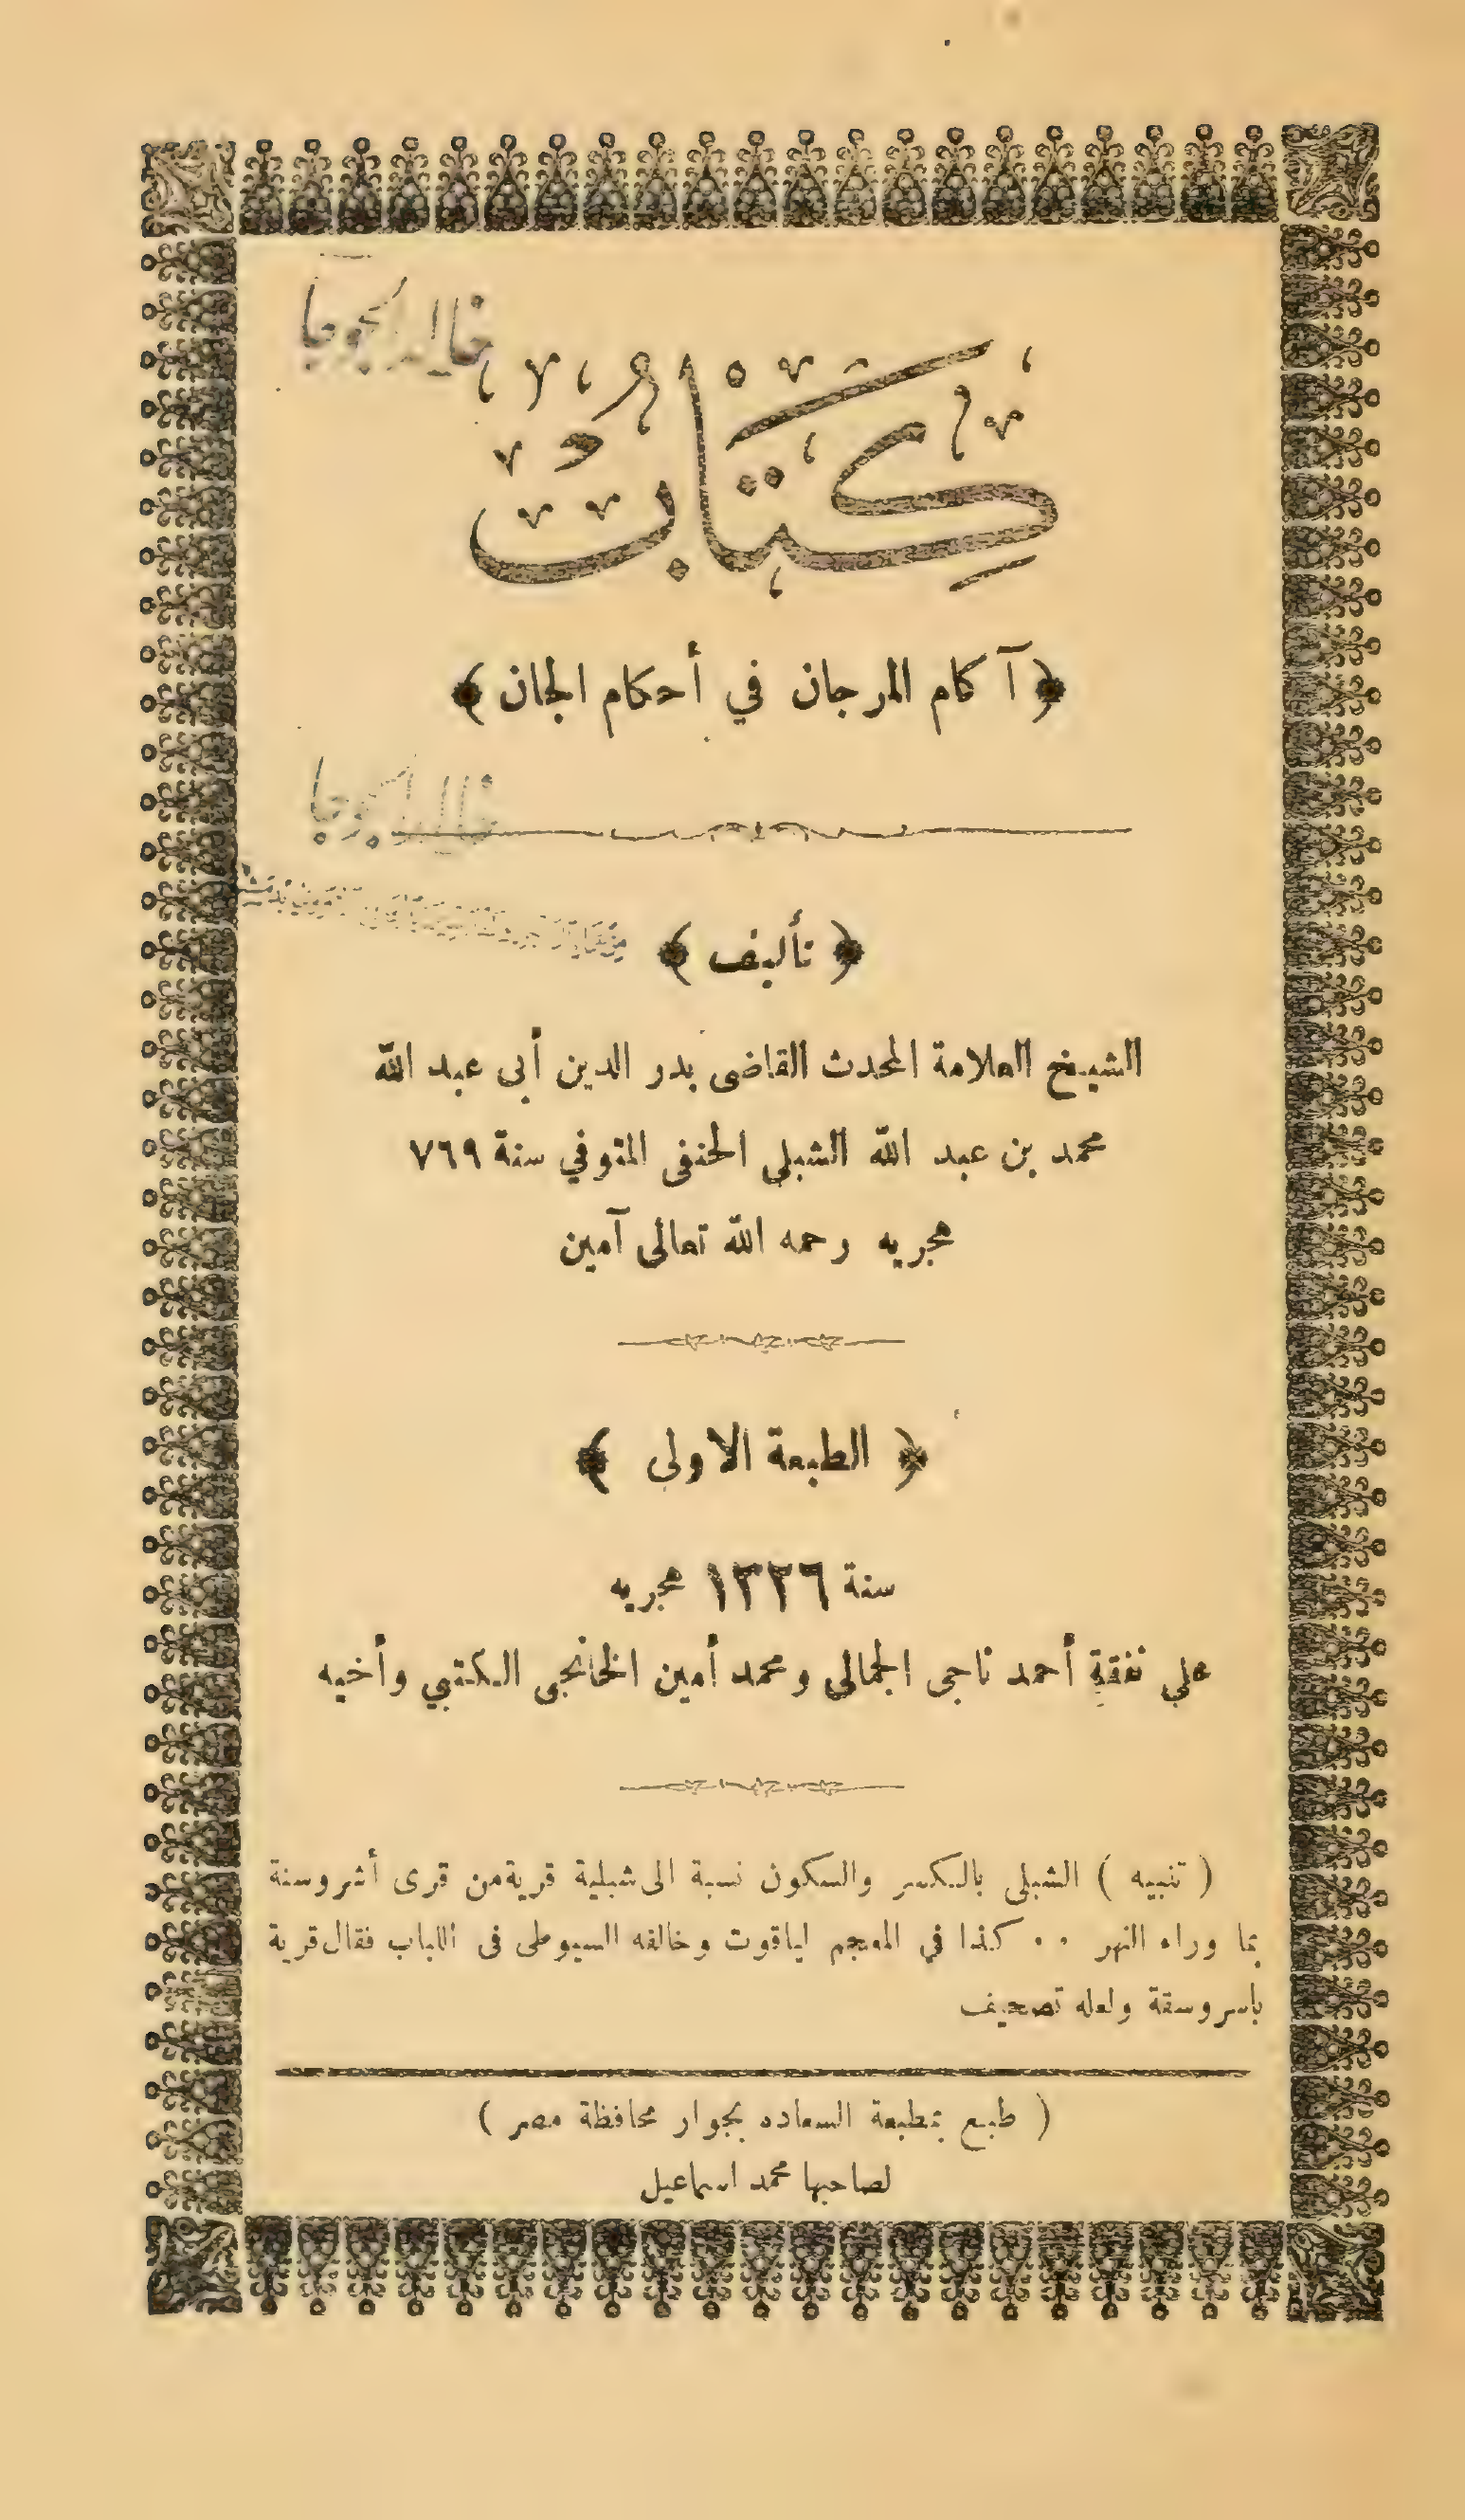 كِتَابٌ
﴿ آكام المرجان في أحكام الجان ﴾
﴿ تأليف ﴾
الشيخ العلامة المحدث القاضى بدر الدين أبى عبد الله
محمد بن عبد الله الشبلى الحنفى المتوفي سنة ٧٦٩
هجريه رحمه الله تعالى آمين
﴿ الطبعة الاولى ﴾
سنة ١٣٢٦ هجريه
على نفقة أحمد ناجى الجمالى ومحمد أمين الخانجى الكتبي وأخيه
( تنبيه ) الشبلى بالكسر والسكون نسبة الى شبلية قرية من قرى أشروسنة
بما وراء النهر ٠٠ كذا في المعجم لياقوت وخالفه السيوطى فى اللباب فقال قرية
باسروسقة ولعله تصحيف
( طبع بمطبعة السعاده بجوار محافظة مصر )
لصاحبها محمد اسماعيل